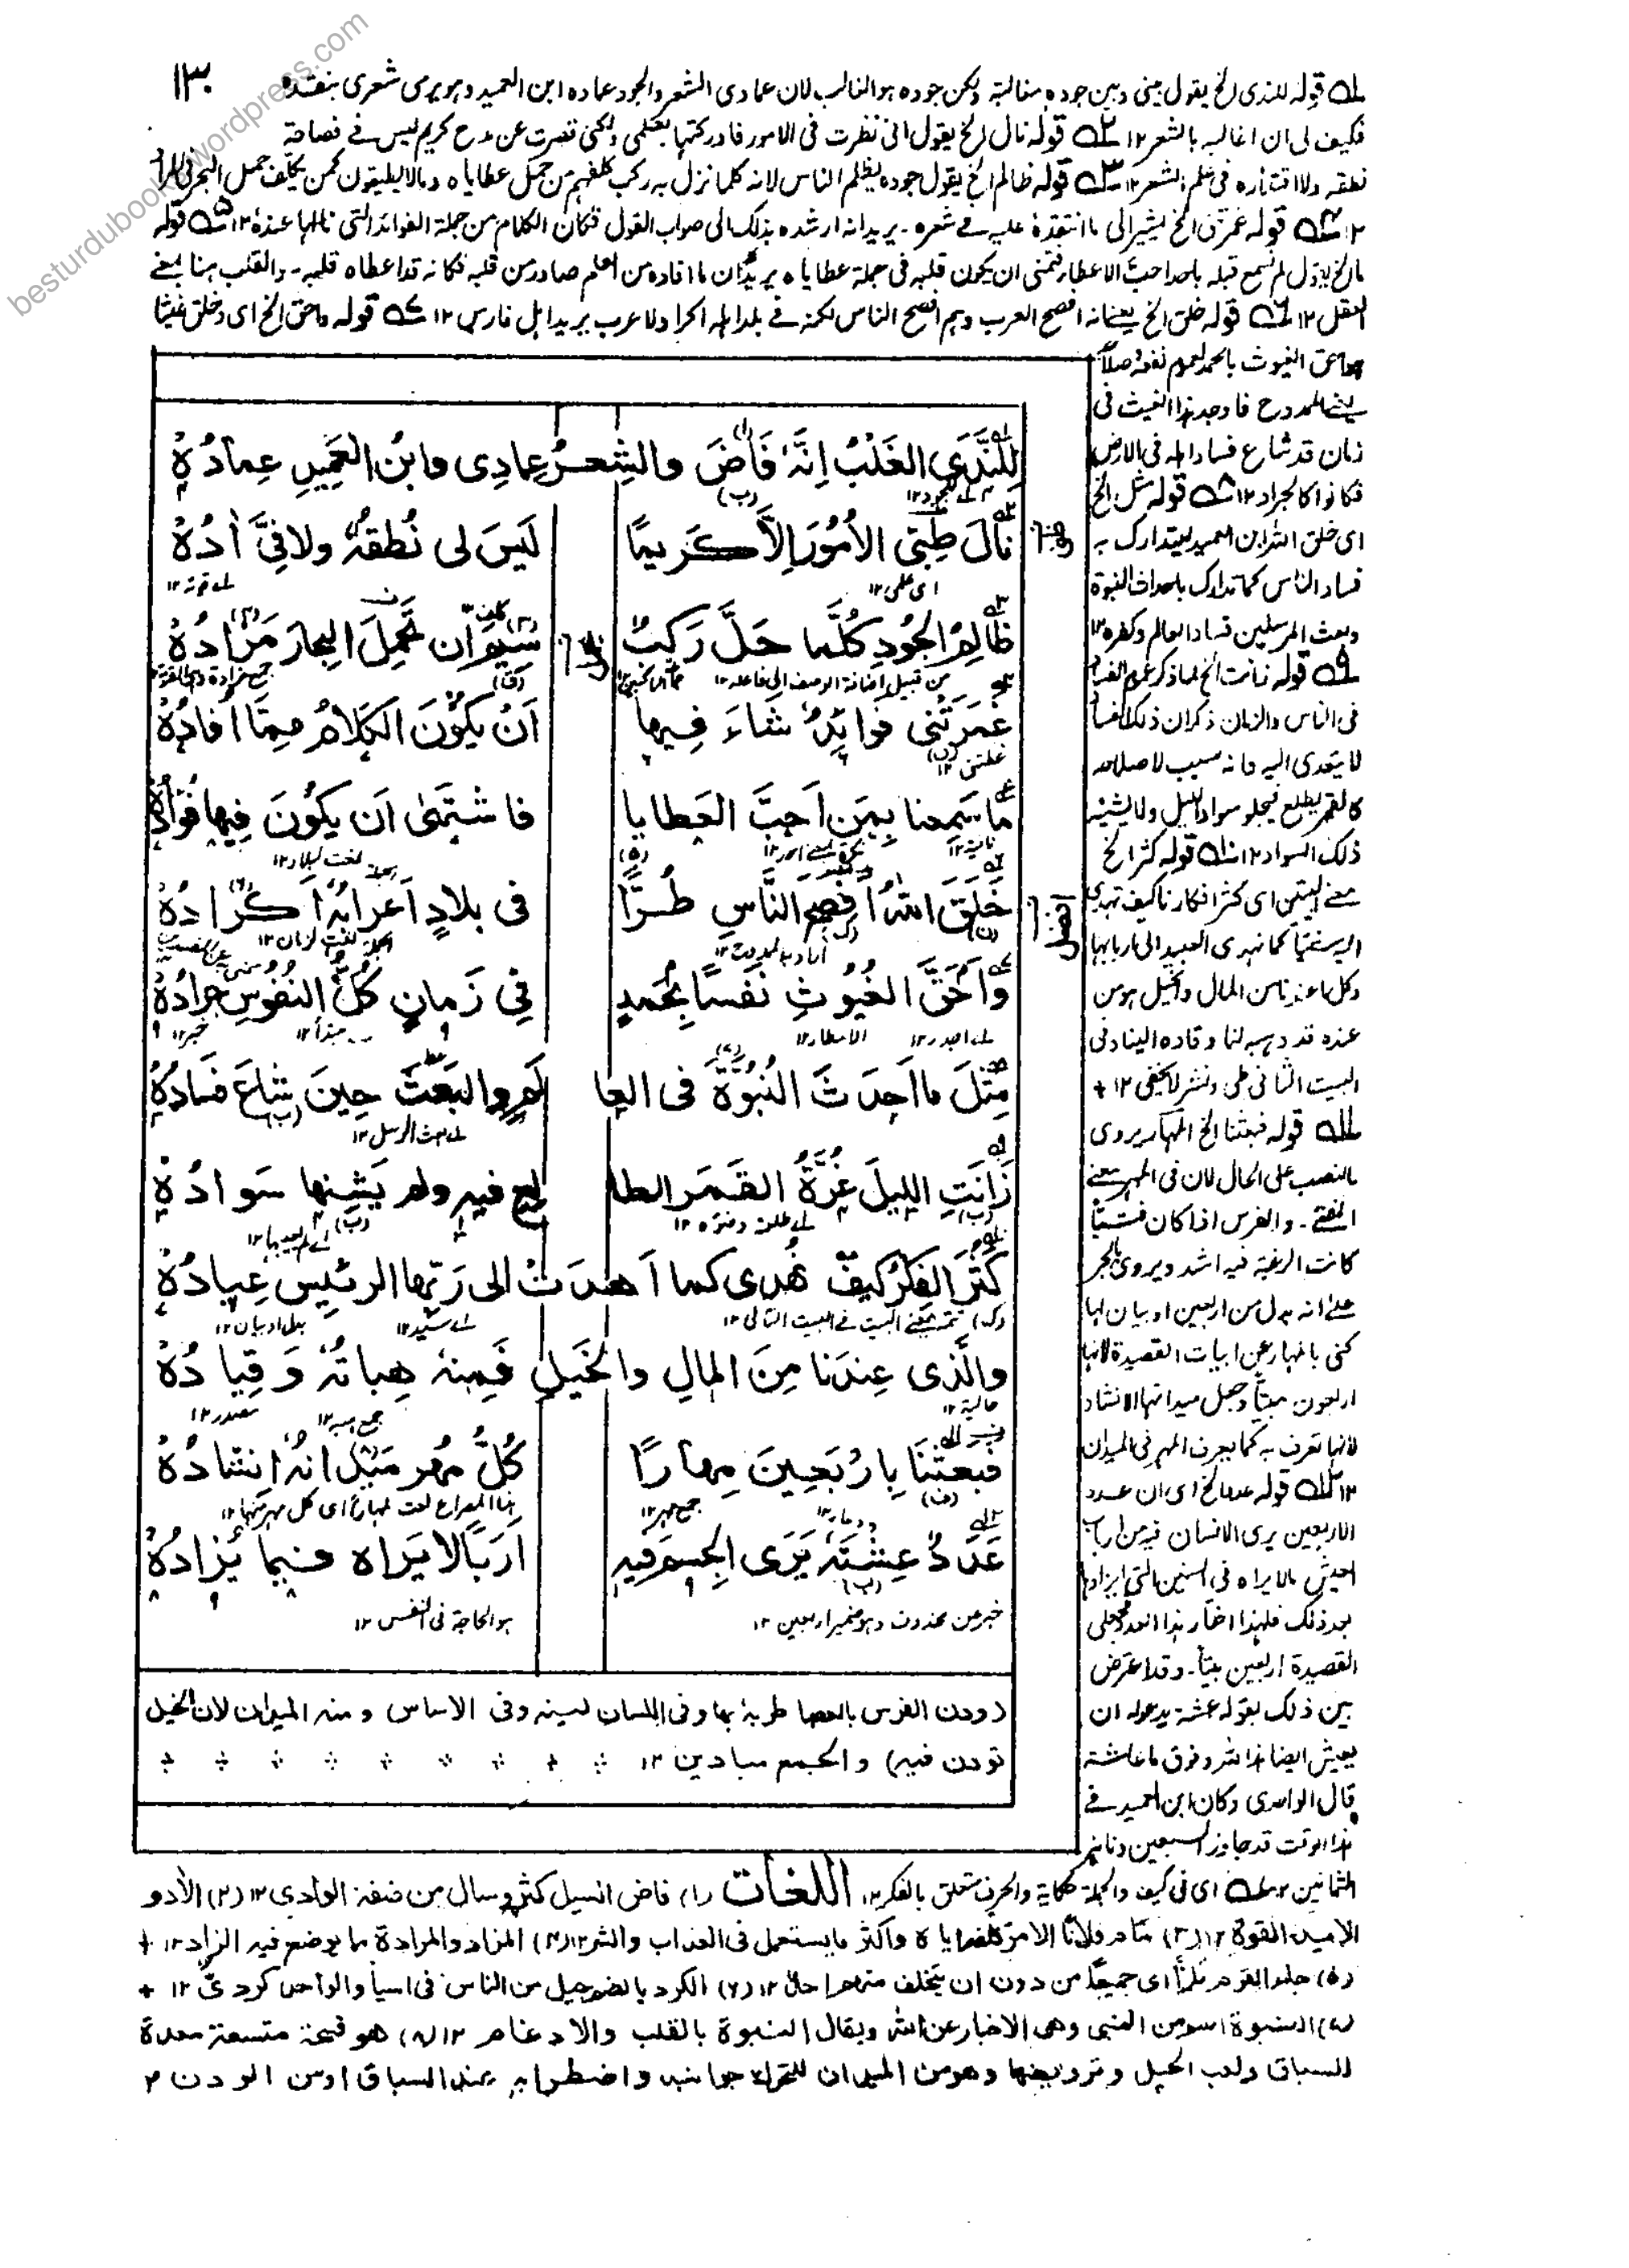 besturdubooks.wordpress.com
١٣٠
له قوله للندى الخ يقول بينى وبين جوده مغالبة ولكن جوده هو الغالب لان عمادى الشعر والجود عماده ابن العميد وهو يرى شعرى بنقده
فكيف لى ان اغالبه بالشعر ١٢ قوله نال الخ يقول انى نظرت فى الامور فادركتها بعلمى ولكنى قصرت عن مدح كريم ليس لى فصاحة
نطقه ولا اقتداره فى علم الشعر ١٢ قوله ظالم الخ يقول جوده يظلم الناس لانه كلما نزل به ركب كلفهم من حمل عطاياه ما لا يطيقون كمن يكلف حمل البحر فى المزاد
١٢ قوله غمرتنى الخ يشير الى ما انتقده عليه فى شعره ۔ يريد انه ارشده بذلك الى صواب القول فكان الكلام من جملة الفوائد التى نالها عنده ١٢ قوله
ما الخ يقول لم نسمع قبله باحد احب الاعطاء فتمنى ان يكون قلبه فى جملة عطاياه يريد ان ما افاده من العلم صادر من قلبه فكانه قد اعطاه قلبه ۔ والقلب هنا بمعنى
العقل ١٢ قوله خلق الخ يعنى انه افصح العرب وهم افصح الناس لكنه فى بلد اهله اكراد لا عرب يريد اهل فارس ١٢ قوله واحق الخ اى وخلق غيثا
هو احق الغيوث بالحمد لعموم نفعه وصلاحه
يعنى الممدوح فاوجد هذا الغيث فى
زمان قد شاع فساد اهله فى الارض
فكانوا كالجراد ١٢ قوله مثل الخ
اى خلق الله ابن العميد ليتدارك به
فساد الناس كما تدارك باحداث النبوة
وبعث المرسلين فساد العالم وكفره ١٢
قوله زانت الخ لما ذكر عموم الفساد
فى الناس والزمان ذكر ان ذلك الفساد
لا يتعدى اليه وانه سبب لاصلاحه
كالقمر يطلع فيجلو سواد الليل ولا يشينه
ذلك السواد ١٢ قوله كثر الخ
معنى البيتين اى كثر افكارنا كيف نهدى
اليه شيئا كما تهدى العبيد الى اربابها
وكل ما عندنا من المال والخيل هو من
عنده قد وهبه لنا وقاده الينا وفى
البيت الثانى طى ونشر لا يخفى ١٢ +
قوله فبعثنا الخ المهار يروى
بالنصب على الحال لان فى المهر معنى
الفتى ۔ والفرس اذا كان فتيا
كانت الرغبة فيه اشد ويروى بالجر
على انه بدل من اربعين او بيان لها
كنى بالمهار عن ابيات القصيدة لانها
اربعون بيتا وجعل ميدانها الانشاد
لانها تعرف به كما يعرف المهر فى الميدان
١٢ قوله عدد الخ اى ان عدد
الاربعين يرى الانسان فيه من ارب
العيش ما لا يراه فى السنين التى يزادها
بعد ذلك فلهذا اختار هذا العدد فجعل
القصيدة اربعين بيتا ۔ وقد اعترض
بين ذلك بقوله عشته يدعو له ان
يعيش ايضا هذا القدر فوق ما عاشه
قال الواحدى وكان ابن العميد فى
هذا الوقت قد جاوز السبعين وناهز
لِلنَّدَى الغَلْبُ اِنَّهٗ فَاضَ والشِعرُ عِمادِى وابنُ العَمِيدِ عِمادُهٗ
نالَ ظَنِّى الأُمُوْرَ اِلَّا كَرِيمًا لَيسَ لى نُطقُهٗ ولا فِىَّ اٰدُهٗ
ظَالِمُ الجُودِ كُلَّما حَلَّ رَكبٌ سِيْمَ اَن تَحْمِلَ البِحارَ مَزَادُهٗ
غَمَرَتْنِى فَوَائِدٌ شَاءَ فِيها اَنْ يكُوْنَ الكَلامُ مِمَّا اَفادُهٗ
ما سَمِعنا بِمَن اَحَبَّ العَطايا فاشتَهٰى اَن يَكُونَ فِيها فُؤادُهٗ
خَلَقَ اللهُ اَفصَحَ النَّاسِ طُرًّا فى بلادٍ اَعرابُهٗ اَكْرادُهٗ
واَحَقَّ الغُيُوثِ نَفسًا بِحَمدٍ فى زَمانٍ كُلُّ النُفُوسِ جَرادُهٗ
مِثلَ ما اَحدَثَ النُبُوَّةَ فى العا لَمِ والبَعثَ حِينَ شاعَ فَسادُهٗ
زَانَتِ الليلَ غُرَّةُ القَمَرِ الطا لِعِ فيهِ ولم يَشِنها سَوادُهٗ
كَثُرَ الفِكرُ كيفَ نُهدى كما اَهدَتْ الى رَبِّها الرئيسِ عِبادُهٗ
والَّذى عِندَنا مِنَ المالِ والخَيلِ فَمِنهُ هِباتُهٗ وَقِيادُهٗ
فبعثنَا بِاَرْبَعِينَ مِهارًا كُلُّ مُهرٍ مَيْدانُهٗ اِنشادُهٗ
عَدَدٌ عِشتَهٗ يَرَى الجِسمُ فِيهِ اَرَبًا لا يَراه فيما يُزادُهٗ
خبر عن محذوف وهو ضمير اربعين ١٢ هو الحاجة فى النفس ١٢
(ودن الفرس بالعصا ضربه بها وفى اللسان لينه وفى الاساس ومنه الميدان لان الخيل
تودن فيه) والجمع ميادين ١٢
الثمانين ١٢ اى فى كيف والجملة حكاية والحرف متعلق بالفكر ١٢ اللغات (١) فاض السيل كثر وسال من ضفة الوادى ١٢ (٢) الأد و
الايد القوة ١٢ (٣) سام فلانا الامر كلفه اياه واكثر ما يستعمل فى العذاب والشر ١٢ (٤) المزاد والمزادة ما يوضع فيه الزاد ١٢ +
(٥) جاء القوم طرًّا اى جميعًا من دون ان يتخلف منهم احد ١٢ (٦) الكرد بالضم جيل من الناس فى اسيا والواحد كردىّ ١٢ +
(٧) النبوة اسم من النبى وهى الاخبار عن الله ويقال النبوة بالقلب والادغام ١٢ (٨) هو فسحة متسعة معدة
للسباق ولعب الخيل وترويضها وهو من الميدان لتحرك جوانبه واضطرابه عند السباق او من الودن ٢